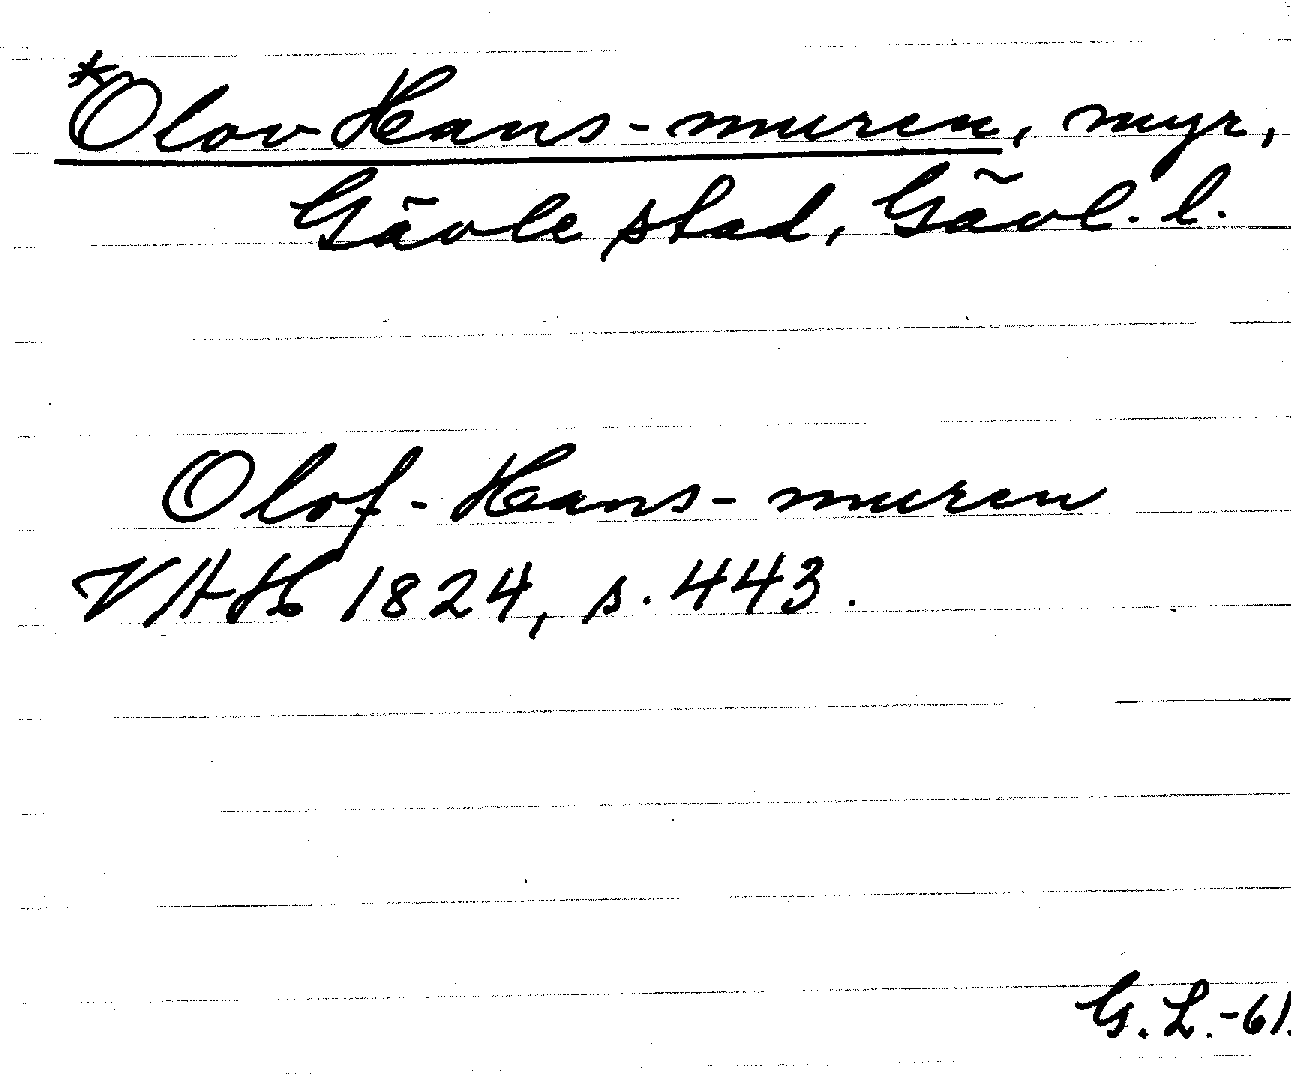 *Olov Hans-muren, myr,
Gävle stad, Gävl. l.
Olof-Hans-muren
VAH 1824, s. 443.
G. L.-61.